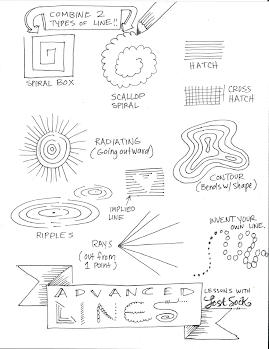 COMBINE 2
TYPES OF LINE!!
SPIRAL BOX
SCALLOP
SPIRAL
HATCH
CROSS
HATCH
RADIATING
(Going outward)
CONTOUR
(Bends w/ shape)
IMPLIED
LINE
RIPPLES
RAYS
(out from
1 point)
INVENT YOUR
OWN LINE.
ADVANCED
LINES
LESSONS WITH
Lost Sock